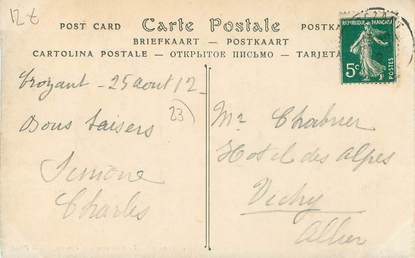 12 €
POST CARD Carte Postale POSTKA
BRIEFKAART – POSTKAART
CARTOLINA POSTALE – ОТКРЫТОЕ ПИСЬМО – TARJETA
RÉPUBLIQUE FRANÇAISE
5c
POSTES
Crozant – 25 aout 12
Bons baisers
Simone
Charles
23
Mr Chabrier
Hotel des Alpes
Vichy
Allier